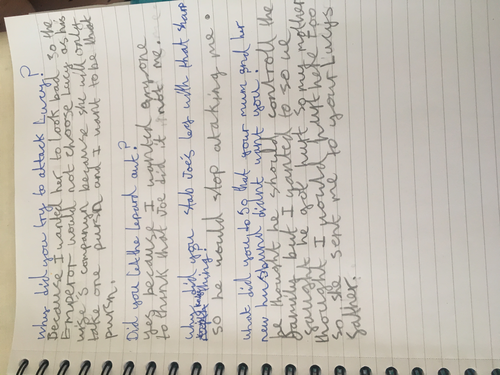 Why did you try to attack Lucy?
Because I wanted her to look bad so the
Emperor would not choose Lucy as his
wise companyn because she will only
take one pursn and I want to be that
pursn.
Did you let the lepard out?
yes because I wanted anyone
to think that Joe did it not me
Why did you stab Joe's leg with that sharp
thing?
so he would stop ataking me.
what did you to so that your mum and her
new husbund didnt want you?
he thought he should controll the
family but I wanted to so we
he got hurt so my mother
thought I would hurt here too
so she sent me to your Lucys
father.